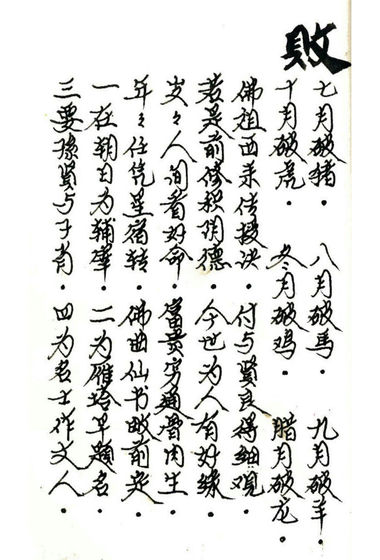 敗
七月破猪。八月破馬。九月破羊。
十月破虎。冬月破鸡。腊月破龙。
佛祖西来传授诀。付与贤良得细观。
若是前修积阴德。今世为人有好缘。
岁々人间看好命。富贵穷通骨肉生。
年々任凭星宿转。佛曲仙书前定。
一在朝日为辅宰。二为雁塔早题名。
三要贤与子肖。四为名士作文人。